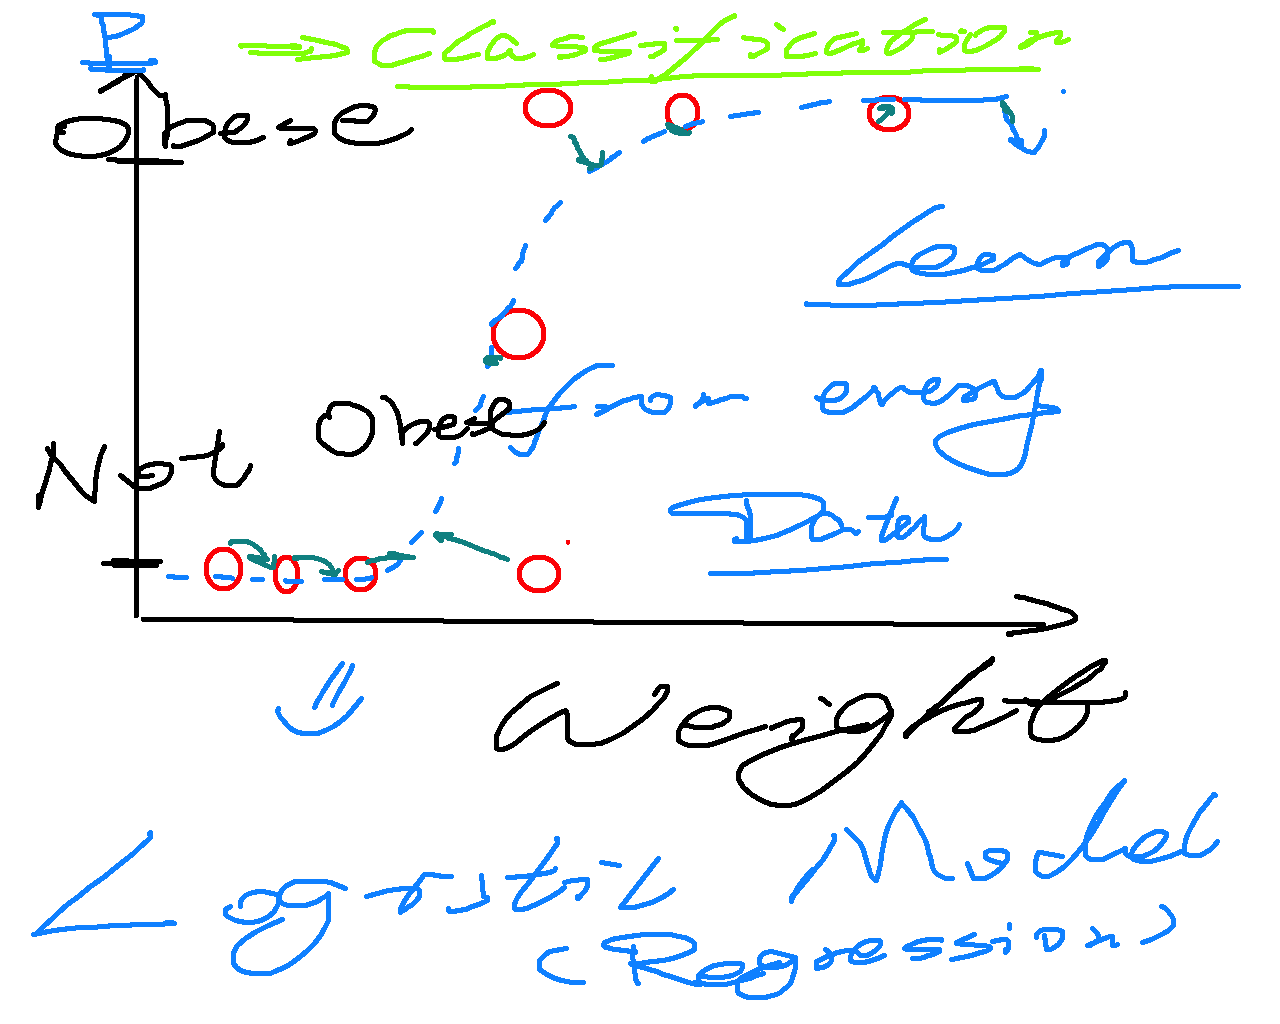 P => Classification
Obese
Learn
from every
Not Obese
Data
Weight
Logistic Model
(Regression)